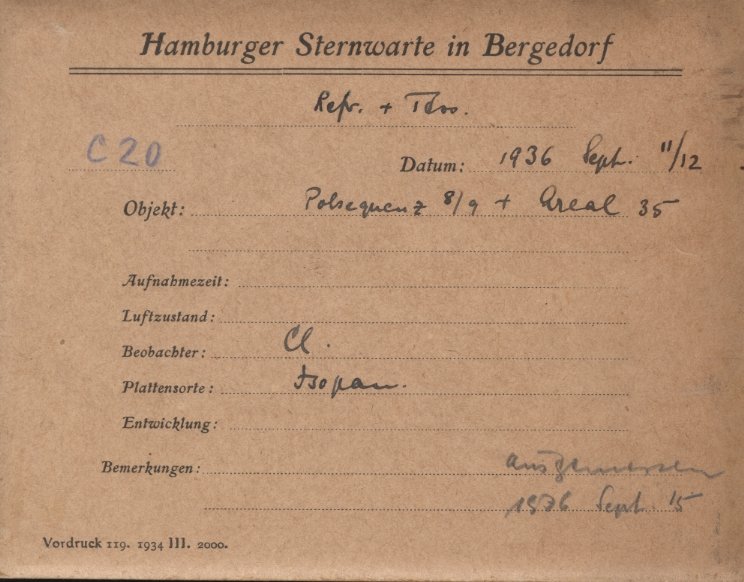 Hamburger Sternwarte in Bergedorf
Refr. +
C 20
Datum: 1936 Sept. 11/12
Objekt: Polsequenz 8/9 + Areal 35
Aufnahmezeit:
Luftzustand:
Beobachter: Cl.
Plattensorte: Isopan.
Entwicklung:
Bemerkungen: ausgemessen
1936 Sept. 15
Vordruck 119. 1934 III. 2000.